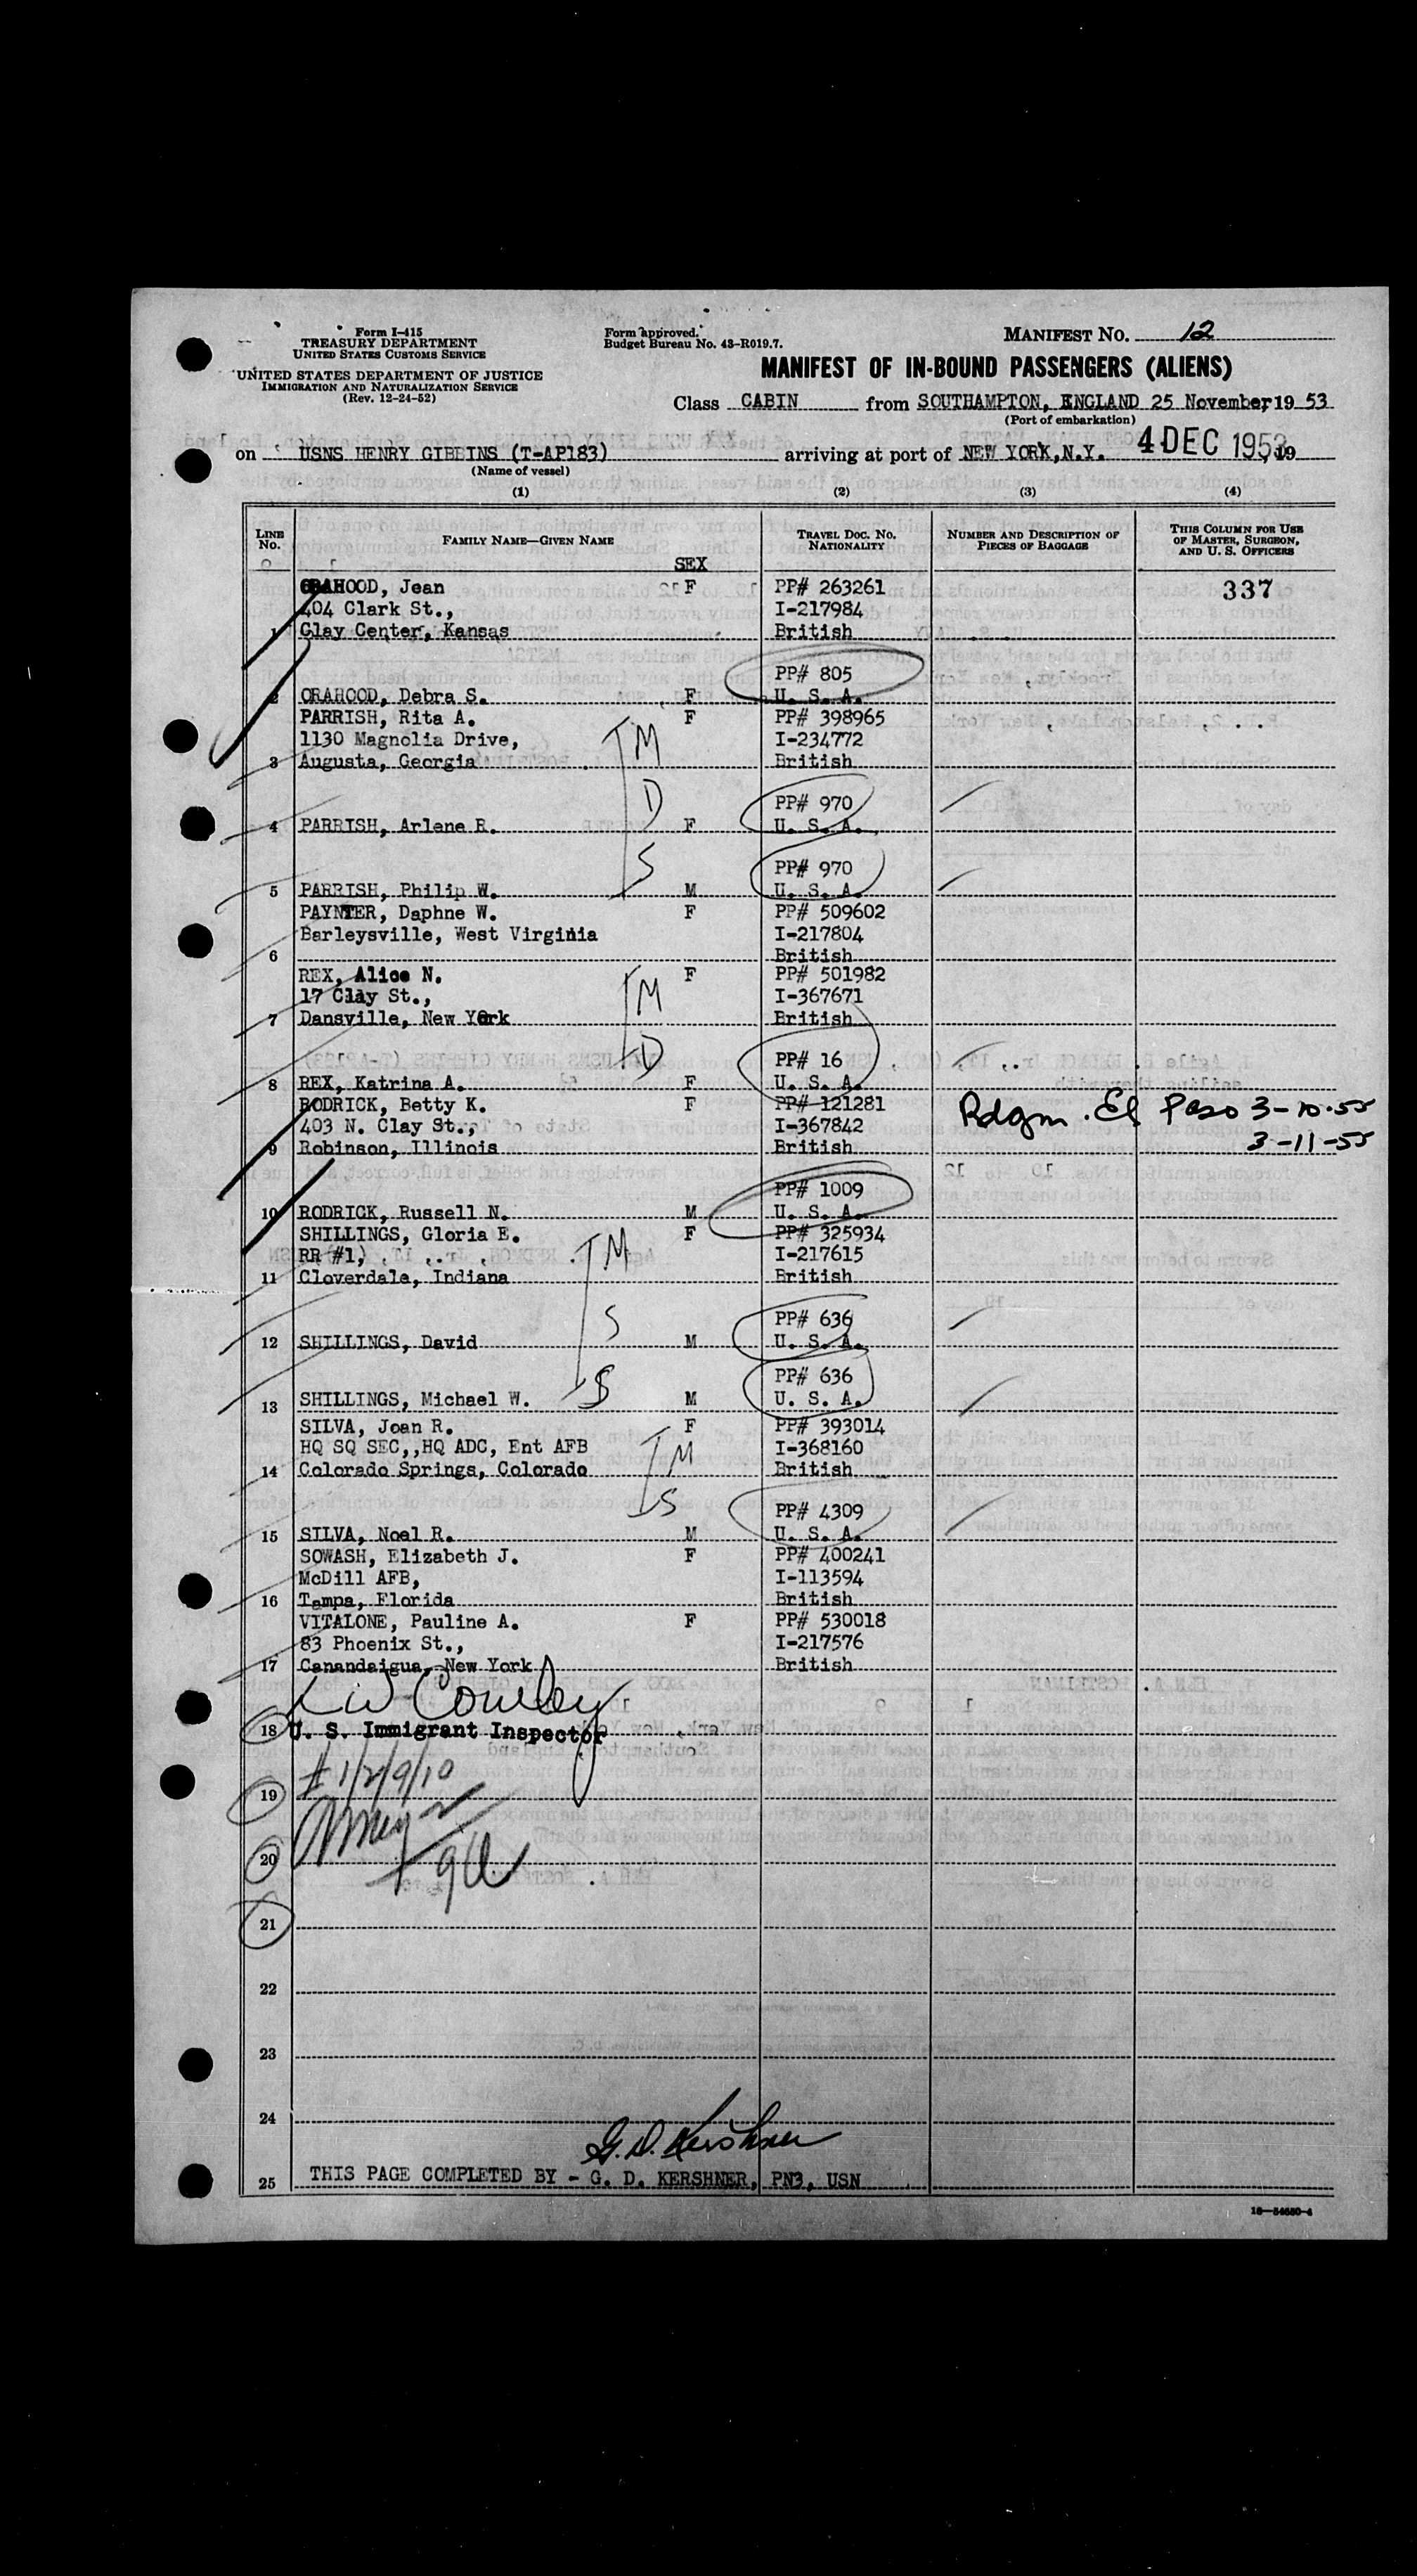 Form I-415
TREASURY DEPARTMENT
UNITED STATES CUSTOMS SERVICE
UNITED STATES DEPARTMENT OF JUSTICE
IMMIGRATION AND NATURALIZATION SERVICE
(Rev. 12-24-52)
Form approved.
Budget Bureau No. 43-R019.7.
MANIFEST NO. 12
MANIFEST OF IN-BOUND PASSENGERS (ALIENS)
Class CABIN from SOUTHAMPTON, ENGLAND 25 November, 19 53
(Port of embarkation)
on USNS HENRY GIBBINS (T-AP183) arriving at port of NEW YORK, N.Y. 4 DEC 1953, 19
(Name of vessel)
(1) (2) (3) (4)
LINE NO. FAMILY NAME—GIVEN NAME SEX TRAVEL DOC. NO. NATIONALITY NUMBER AND DESCRIPTION OF PIECES OF BAGGAGE THIS COLUMN FOR USE OF MASTER, SURGEON, AND U. S. OFFICERS
ORAHOOD, Jean F PP# 263261 337
404 Clark St., I-217984
1 Clay Center, Kansas British
PP# 805
2 ORAHOOD, Debra S. F U. S. A.
PARRISH, Rita A. F PP# 398965
1130 Magnolia Drive, M I-234772
3 Augusta, Georgia British
D PP# 970
4 PARRISH, Arlene R. F U. S. A.
S PP# 970
5 PARRISH, Philip W. M U. S. A.
PAYNTER, Daphne W. F PP# 509602
Barleysville, West Virginia I-217804
6 British
REX, Alice N. F PP# 501982
17 Clay St., M I-367671
7 Dansville, New York British
D PP# 16
8 REX, Katrina A. F U. S. A.
RODRICK, Betty K. F PP# 121281 Rdgm. El Paso 3-10-55
403 N. Clay St., I-367842 3-11-55
9 Robinson, Illinois British
PP# 1009
10 RODRICK, Russell N. M U. S. A.
SHILLINGS, Gloria E. F PP# 325934
RR #1, M I-217615
11 Cloverdale, Indiana British
S PP# 636
12 SHILLINGS, David M U. S. A.
S PP# 636
13 SHILLINGS, Michael W. M U. S. A.
SILVA, Joan R. F PP# 393014
HQ SQ SEC,,HQ ADC, Ent AFB M I-368160
14 Colorado Springs, Colorado British
S PP# 4309
15 SILVA, Noel R. M U. S. A.
SOWASH, Elizabeth J. F PP# 400241
McDill AFB, I-113594
16 Tampa, Florida British
VITALONE, Pauline A. F PP# 530018
83 Phoenix St., I-217576
17 Canandaigua, New York British
18 U. S. Immigrant Inspector
# 1/2/9/10
19
20
21
22
23
24
G. D. Kershner
25 THIS PAGE COMPLETED BY - G. D. KERSHNER, PN3, USN
16—54650-4